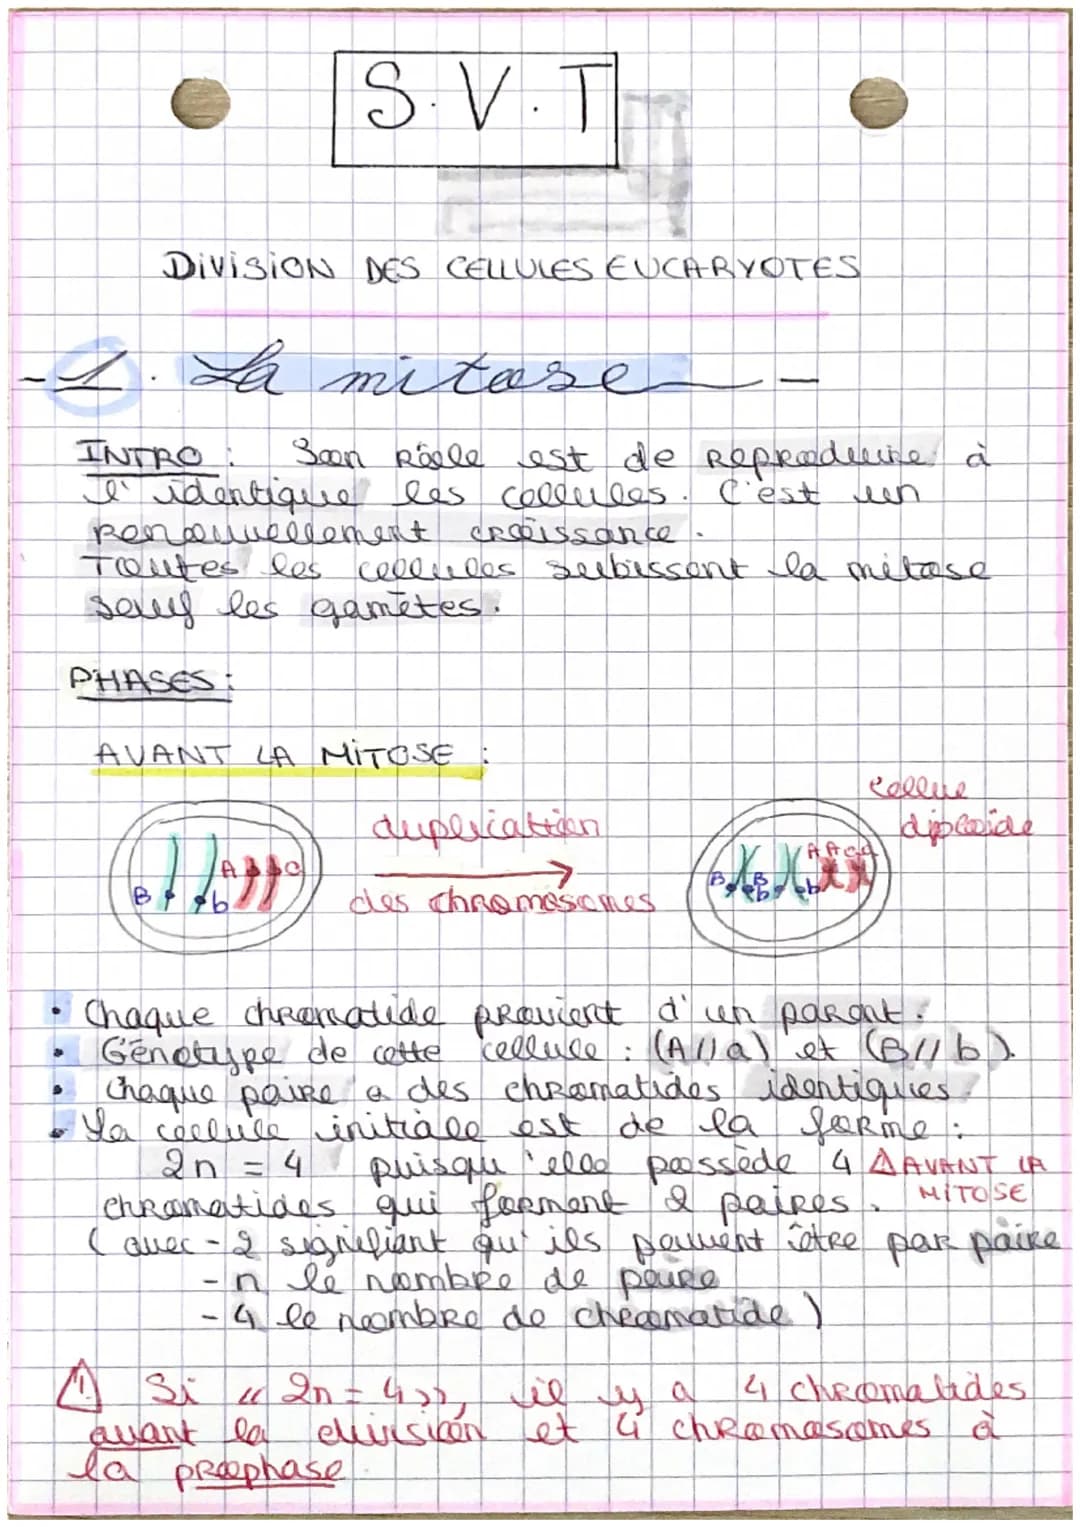 S.V.T
DIVISION DES CELLULES EUCARYOTES
-1. La mitose -
INTRO : Son Rôle est de Reproduire à
l'identique les cellules. C'est un
renouvellement croissance.
Toutes les cellules subissent la mitose
sauf les gamètes.
PHASES :
AVANT LA MITOSE :
cellule
diploïde
duplication
des chromosomes
A a
B b
A A a a
B B b b
• Chaque chromatide provient d'un parent.
• Génotype de cette cellule : (A//a) et (B//b).
• Chaque paire a des chromatides identiques.
• La cellule initiale est de la forme :
2n = 4 puisqu'elle possède 4 △ AVANT LA
MITOSE
chromatides qui forment 2 paires.
(avec - 2 signifiant qu'ils peuvent être par paire
- n le nombre de paire
- 4 le nombre de chromatide)
⚠ Si « 2n = 4 », il y a 4 chromatides
avant la division et 4 chromosomes à
la prophase.